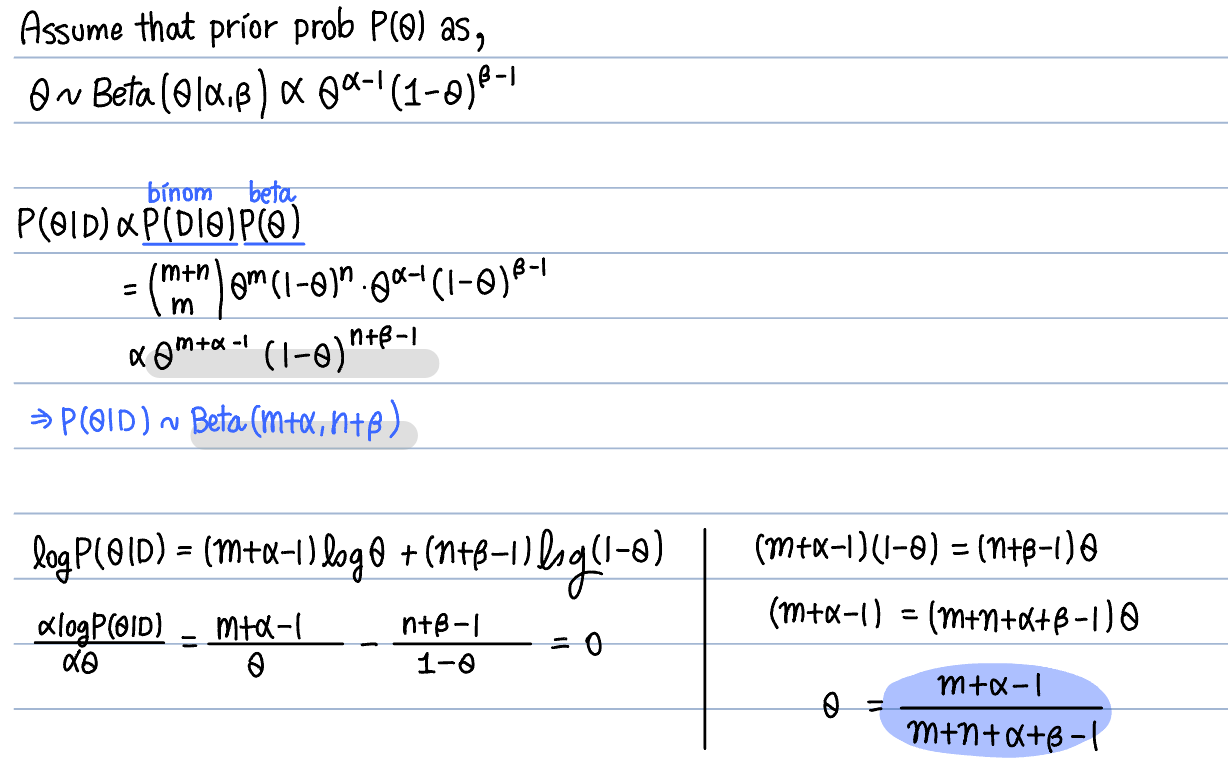 Assume that prior prob P(θ) as,
θ ~ Beta(θ|α,β) ∝ θ^{α-1} (1-θ)^{β-1}
binom beta
P(θ|D) ∝ P(D|θ)P(θ)
= \binom{m+n}{m} θ^m (1-θ)^n · θ^{α-1} (1-θ)^{β-1}
∝ θ^{m+α-1} (1-θ)^{n+β-1}
⇒ P(θ|D) ~ Beta(m+α, n+β)
log P(θ|D) = (m+α-1) log θ + (n+β-1) log (1-θ)
\frac{αlogP(θ|D)}{αθ} = \frac{m+α-1}{θ} - \frac{n+β-1}{1-θ} = 0
(m+α-1)(1-θ) = (n+β-1)θ
(m+α-1) = (m+n+α+β-1)θ
θ = \frac{m+α-1}{m+n+α+β-1}